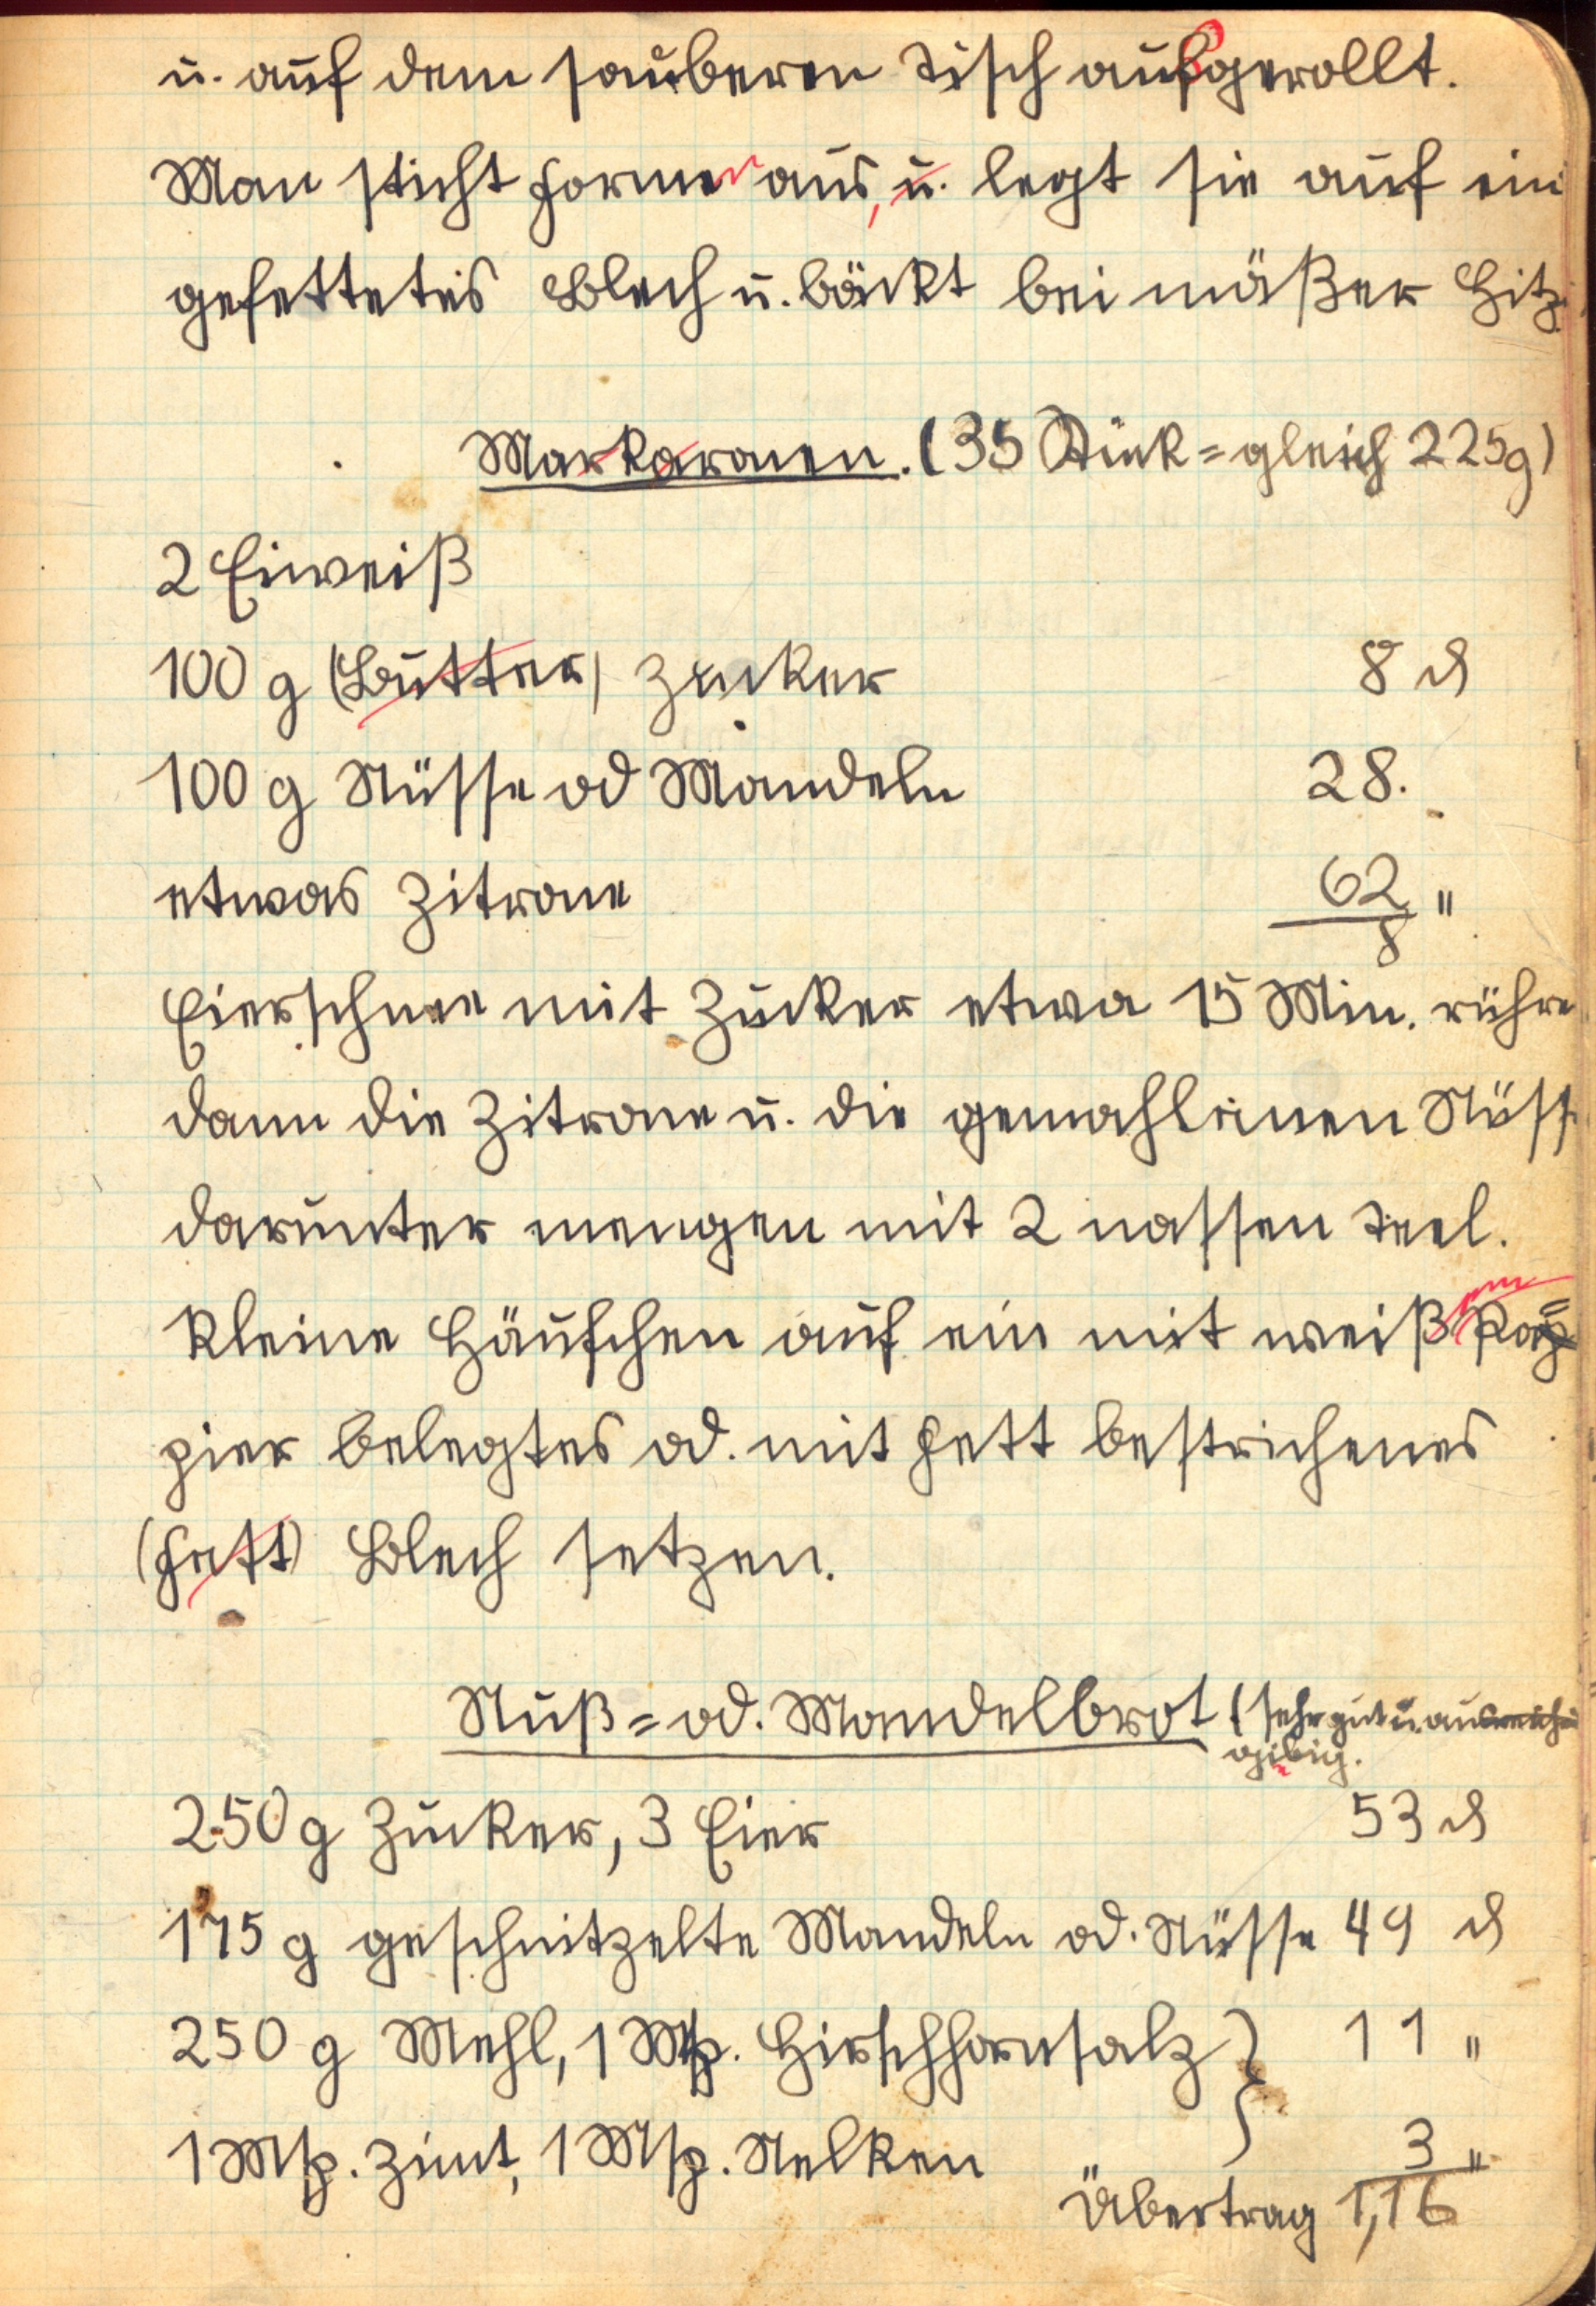 u. auf dem sauberen Tisch aufgerollt.
Man sticht Formen aus, u. legt sie auf ein
gefettetes Blech u. bäckt bei mäßer Hitz
Markaronen. (35 Stück = gleich 225g)
2 Eiweiß
100 g (Butter) Zucker 8 ₰
100 g Nüsse od Mandeln 28.
etwas Zitrone 62 "
8
Eierschnee mit Zucker etwa 15 Min. rühre
dann die Zitrone u. die gemahlenen Nüss
darunter mengen mit 2 nassen Teel.
kleine Häufchen auf ein mit weißem Pa=
pier belegtes od. mit Fett bestrichenes
(Fett) Blech setzen.
Nuß= od. Mandelbrot (sehr gut u. aus
gibig.
250 g Zucker, 3 Eier 53 ₰
175 g geschnitzelte Mandeln od. Nüsse 49 ₰
250 g Mehl, 1 Msp. Hirschhornsalz } 11 "
1 Msp. Zimt, 1 Msp. Nelken 3 "
Übertrag 1,16